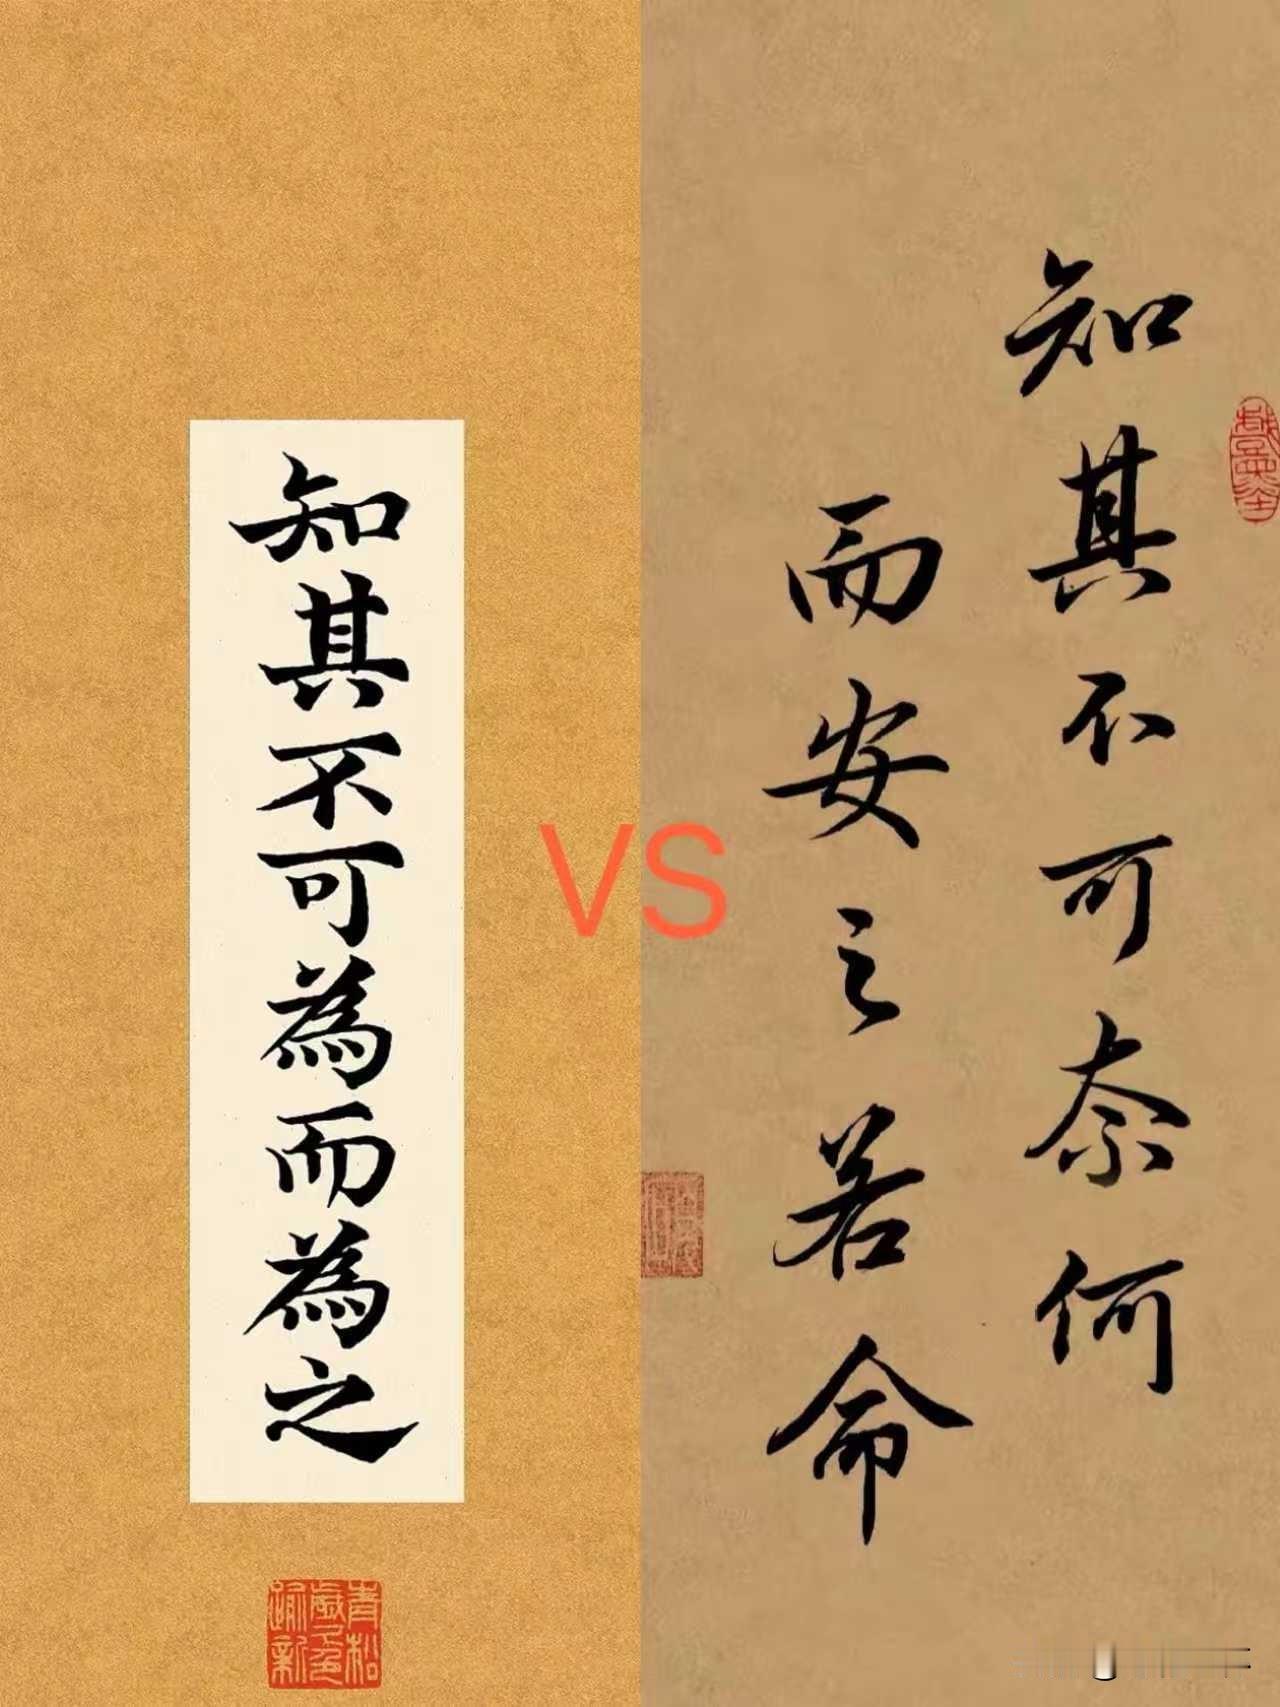 知其不可為而為之
VS
知其不可奈何
而安之若命